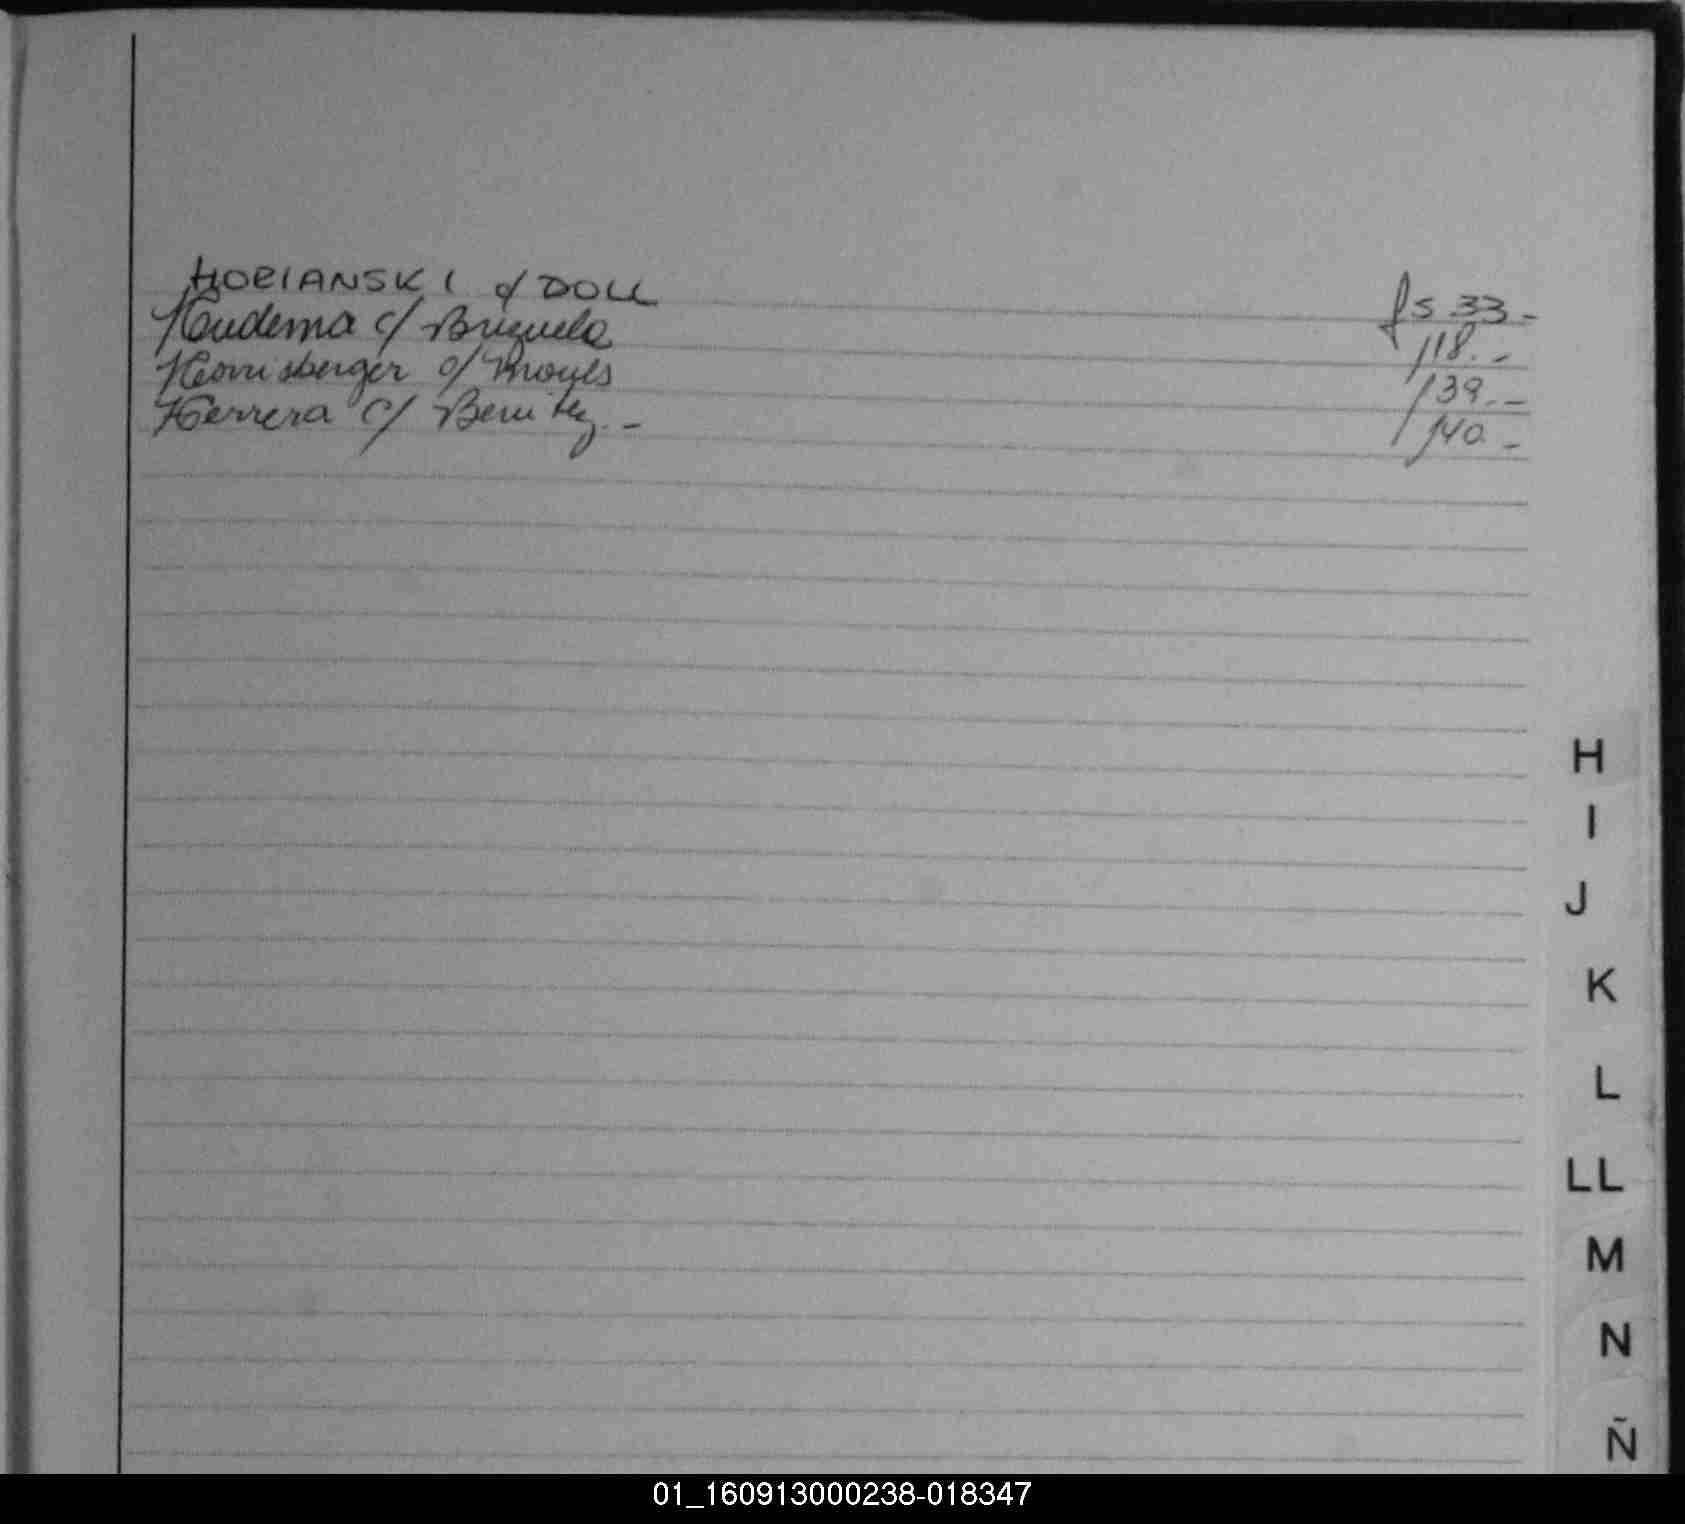 HORIANSKI c/ DOLL fs 33.-
Hudema c/ Brizuela 118.-
c/ 139.-
Herrera c/ Benitez.- 140.-
H
I
J
K
L
LL
M
N
Ñ
01_160913000238-018347